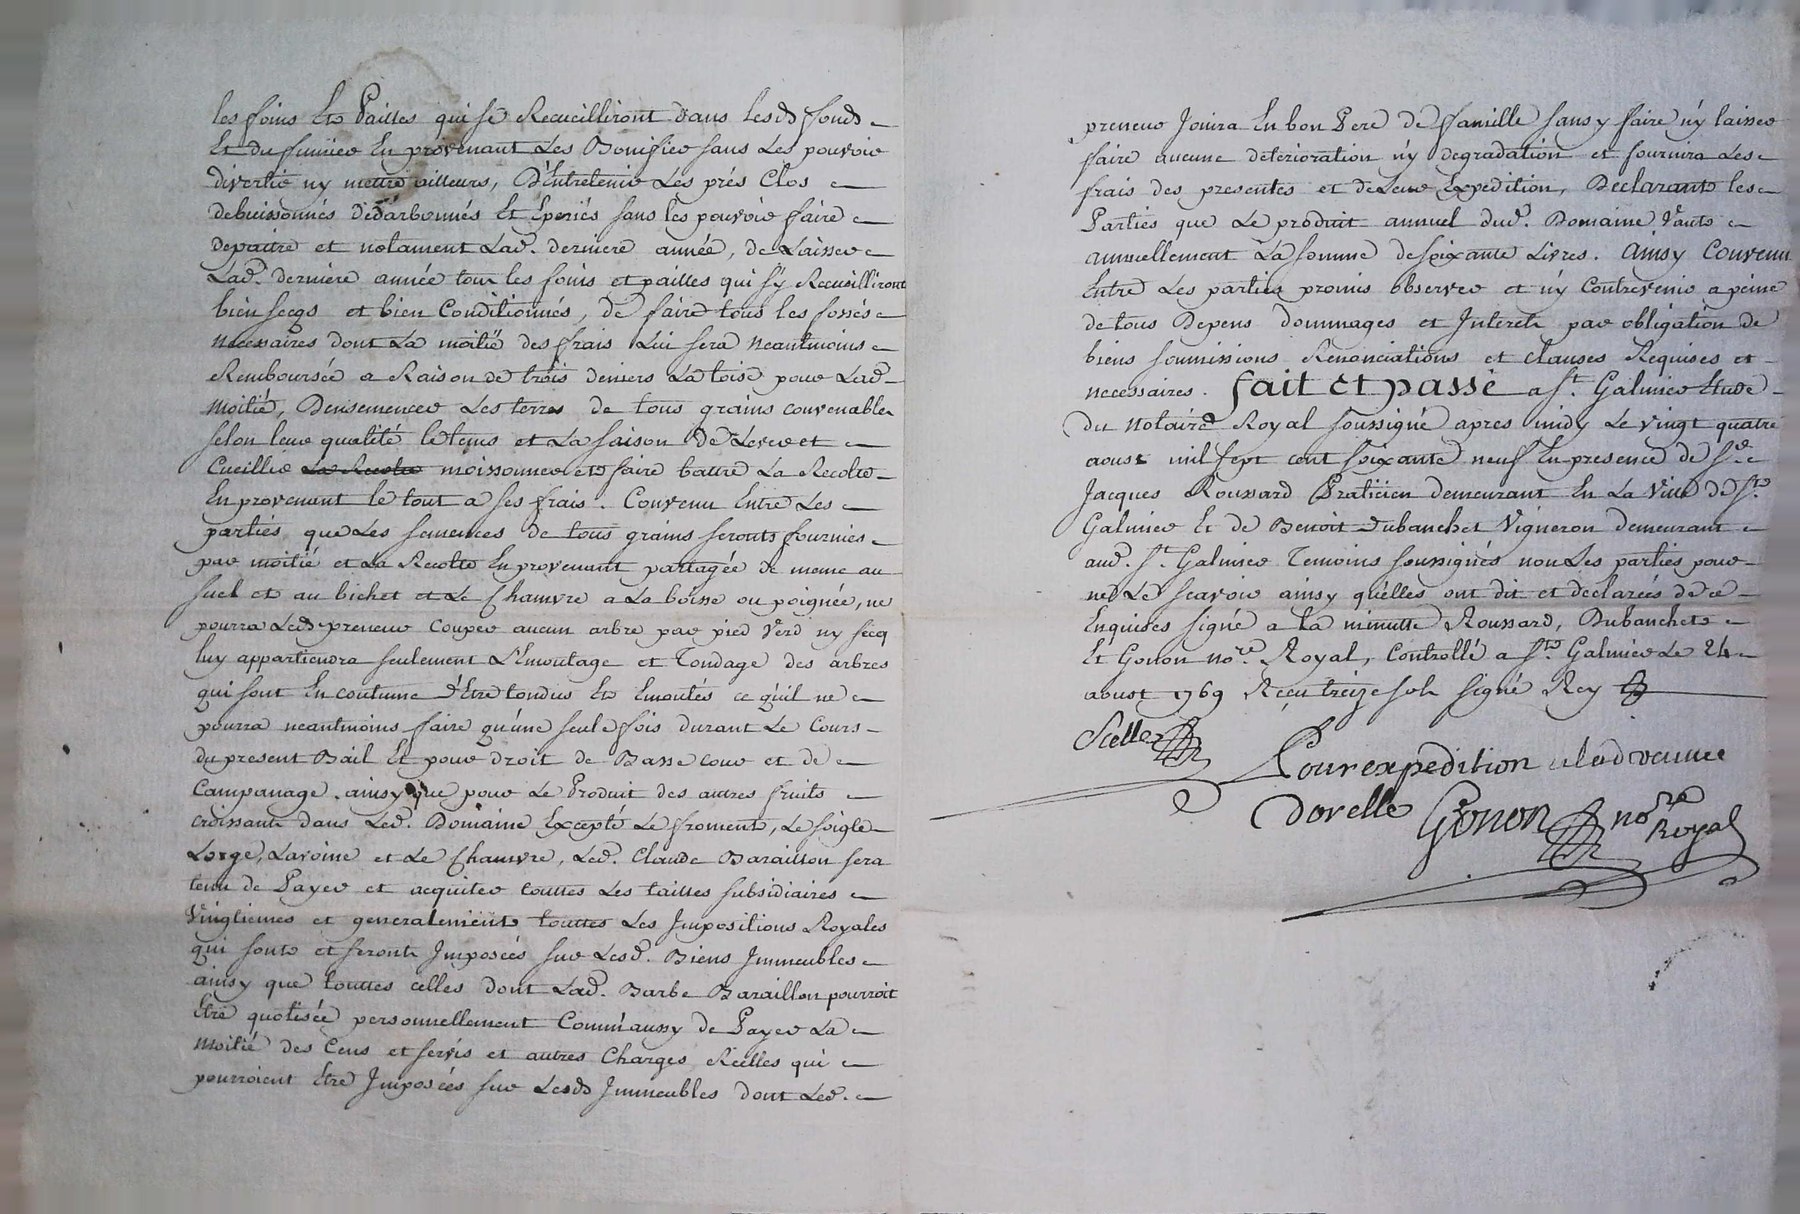 les foins Et Pailles qui se Recueilliront dans Lesd fonds
Et du fumier En provenant Les Bonifier sans Les pouvoir
divertir ny mettre ailleurs, D'Entretenir Les prés Clos
debuissonnés dédarbonnés Et Eperiés sans les pouvoir faire
depaitre et notament Lad. derniere année, de Laisser
Lad. derniere année tous les foins et pailles qui s'y Recueilliront
bien secqs et bien Conditionnés, de faire tous les fossés
necessaires dont La moitié des frais Lui sera neantmoins
Remboursée a Raison de trois deniers La toise pour Lad.
moitié, Densemencer Les terres de tous grains convenables
selon leur qualité le tems et La saison De Lever et
Cueillir La Recolte moissonner et faire battre La Recolte
En provenant le tout a ses frais. Convenu Entre Les
parties que Les semences de tous grains seronts fournies
par moitié et La Recolte En provenant partagée de meme au
suel et au bichet et Le Chamvre a La boisse ou poignée, ne
pourra Led preneur Couper aucun arbre par pied Verd ny secq
luy appartiendra seulement L'Emoutage et Tondage des arbres
qui sont En coutume d'Etre tondus Et Emoutés ce qu'il ne
pourra neantmoins faire qu'une seule fois durant Le Cours
du present Bail Et pour droit de Basse cour et de
Campanage. ainsy que pour Le Produit des autres fruits
croissant dans Led. Domaine Excepté Le froment, Le soigle
Lorge, Lavoine et Le Chamvre, Led. Claude Baraillon sera
tenu de Payer et acquiter touttes Les tailles subsidiaires
Vingtiemes et generalement touttes Les Impositions Royales
qui sonts et seronts Imposées sur Lesd. Biens Immeubles
ainsy que touttes celles dont Lad. Barbe Baraillon pourroit
Etre quotisée personnellement Comm'aussy de Payer La
moitié des Cens et servis et autres Charges Réelles qui
pourroient Etre Imposées sur Lesd Immeubles dont Led.
preneur Jouira En bon Pere de famille sans y faire n'y laisser
faire aucune deterioration n'y degradation et fournira Les
frais des presentes et de Leur Expedition, Declarants les
Parties que Le produit annuel dud. Domaine Vauts
annuellement La somme de soixante Livres. Ainsy Convenu
Entre Les parties promis observer et n'y Contrevenir a peine
de tous Depens dommages et Interets par obligation de
biens soumissions Renonciations et clauses Requises et
necessaires. fait et passé a St. Galmier Etude
du Notaire Royal soussigné apres midy Le vingt quatre
aoust mil sept cent soixante neuf En presence de Sr.
Jacques Roussard Praticien demeurant En La Ville de St.
Galmier Et de Benoit Dubanchet Vigneron demeurant
aud. St. Galmier Temoins soussignés non Les parties pour
ne Le scavoir ainsy qu'elles ont dit et declarées de ce
Enquises signé a la minutte Roussard, Dubanchets
Et Gonon nore. Royal, Controllé a St. Galmier Le 24
aoust 1769 Reçu treize sols signé Rey
Scellé
Pour expedition a lad veuve
dorelle Gonon nore
Royal